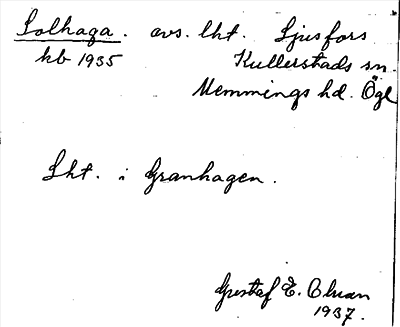 Solhaga. avs. lht. Ljusfors
kb 1935 Kullerstads sn.
Memmings hd. Ögl
Lht. i Granhagen.
Gustaf E. Oluan
1937.